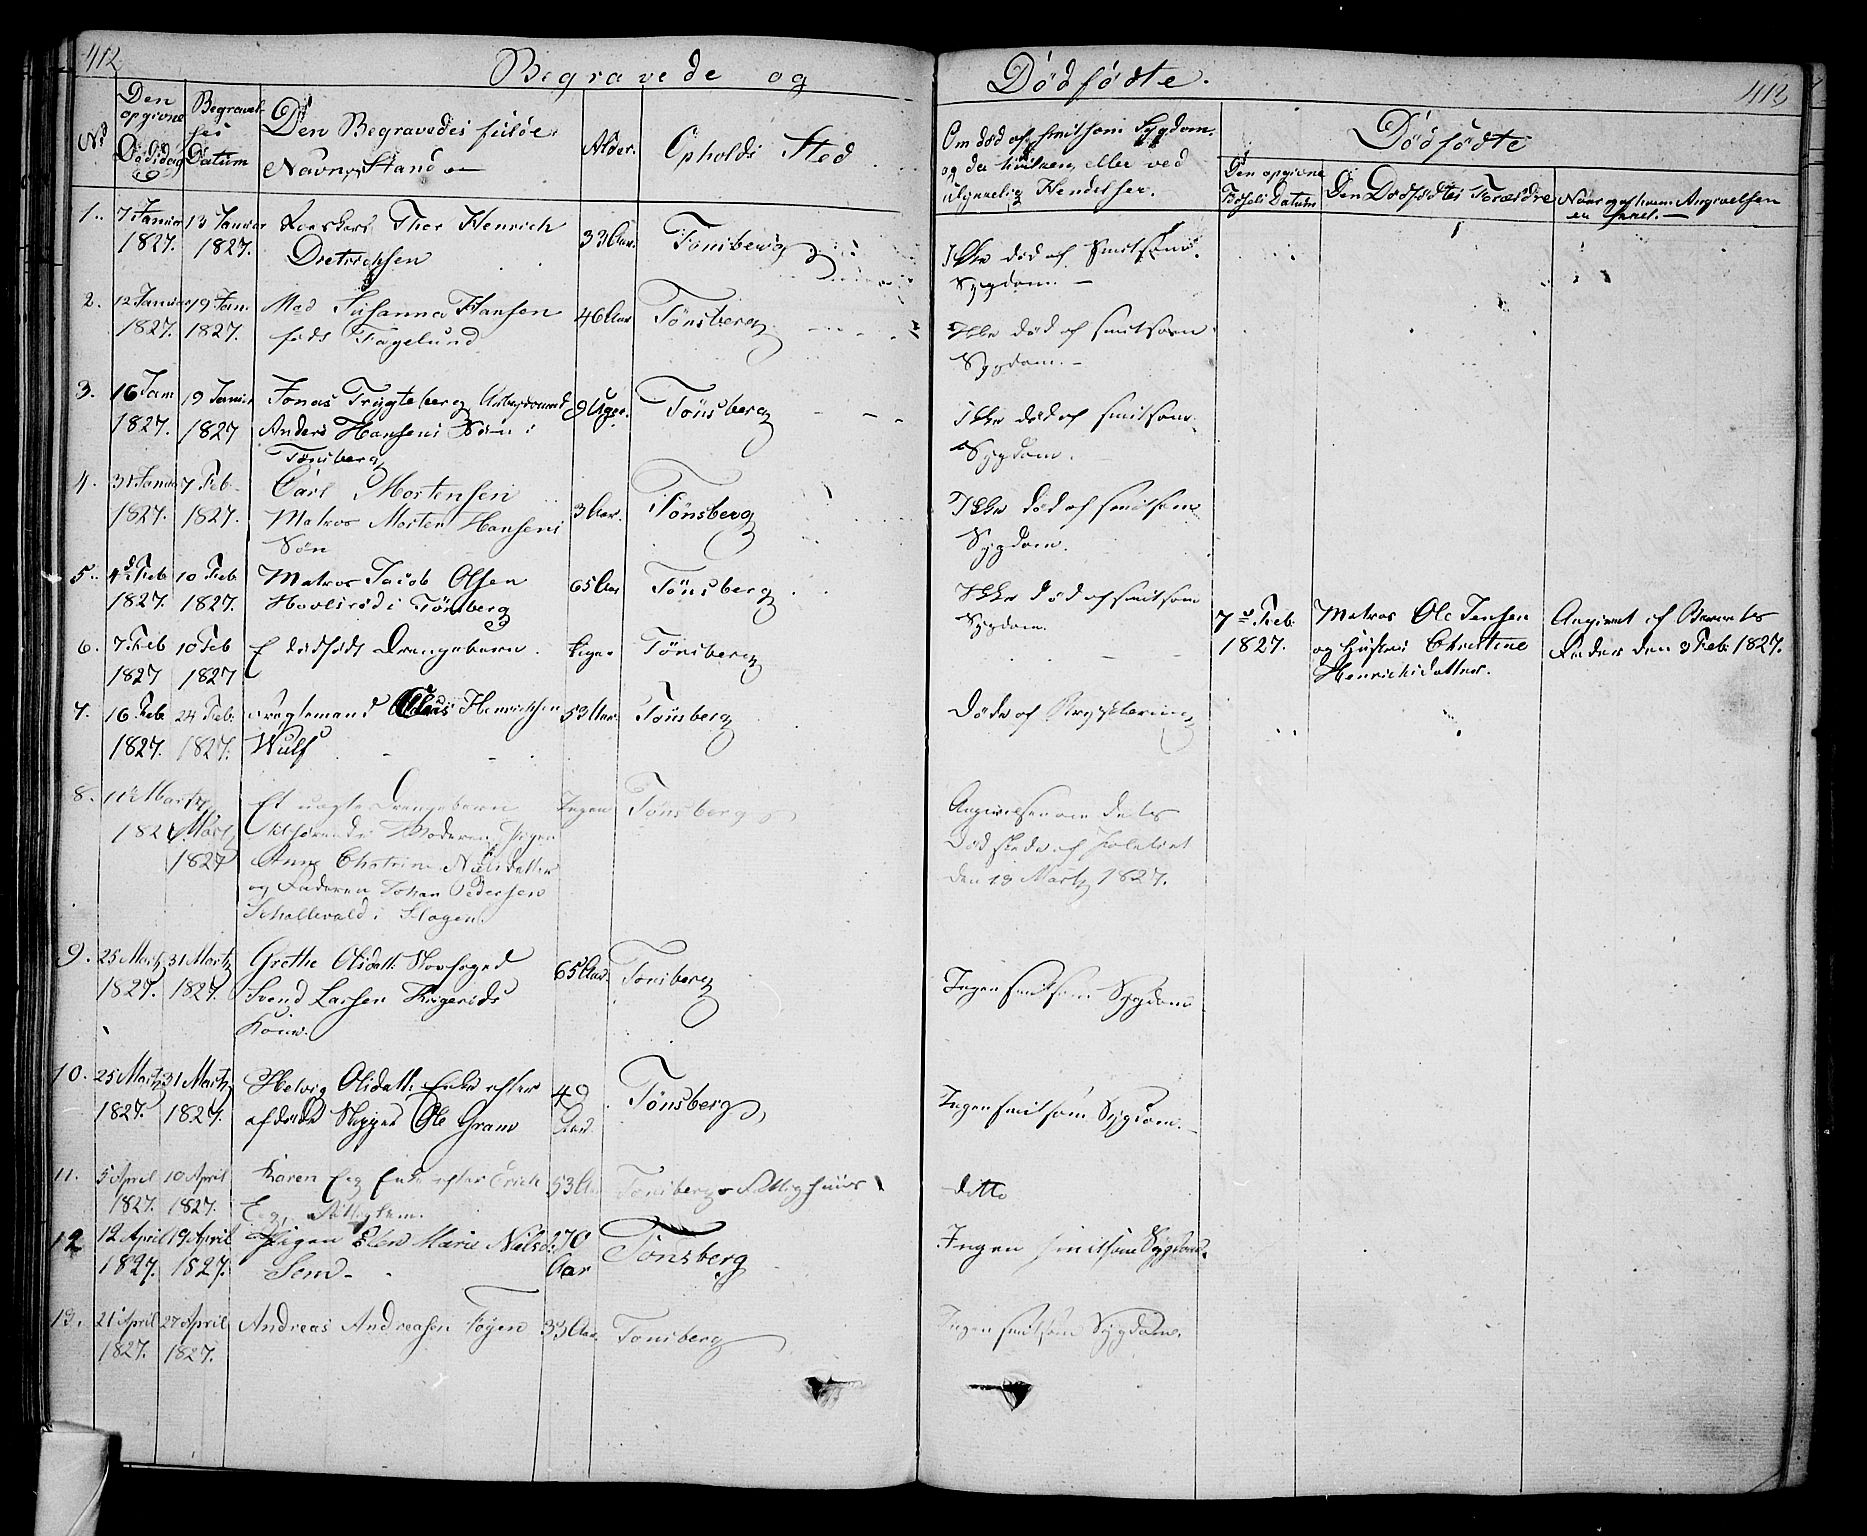 412
Begravede og Dødfødte.
413
No
Den opgivne Dødsdag
Begravelses Datum
Den Begravedes fulde Navn, Stand
Alder.
Opholds Sted
Om død af smitsom Sygdom,
og da hvilken, eller ved
ulykkelig Hendelser.
Dødfødte
Den opgivne Fødsels Datum
Den Dødfødtes Foreldre
Naar og af hvem Angivelsen
er skeet.
1. 7 Januar 13 Januar Thor Henrich 33 Aar. Tønsberg Ikke død af Smitsom
1827. 1827. Dietrichsen Sygdom.
2. 12 Januar 19 Jan. Mad Susanna Hansen 46 Aar Tønsberg Ikke død af smitsom
1827. 1827. født Fagelund Sygdom.
3. 16 Jan 19 Januar Jonas Trygteberg Arbeydsmand 9 Uger. Tønsberg Ikke død af smitsom
1827. 1827 Anders Hansens Søn i Sygdom.
Tønsberg
4. 31 Janua 7 Feb. Carl Mortensen 3 Aar. Tønsberg Ikke død af smitsom
1827. 1827. Matros Morten Hansens Sygdom.
Søn
5. 4d Feb 10 Feb Matros Jacob Olsen 65 Aar Tønsberg Ikke død af smitsom
1827. 1827. i Tønsberg Sygdom.
6. 7 Feb 10 Feb E dødfødt Drengebarn. Ingen Tønsberg 7de Feb. Matros Ole Jensen Angivet af Barnets
1827 1827 1827. og Hustru Christine Fader den 9 Feb 1827.
Henrichsdatter.
7. 16 Feb 24 Feb. Henrichsen 53 Aar. Tønsberg Døde af
1827. 1827. Wulf
8. 11te Martz Et uægte Drengebarn Ingen Tønsberg Angivelsen om dets
Martz Moderen Pigen Død skede af Politiet
1827 Anne Nielsdatter den 13 Martz 1827.
og Faderen Johan Pedersen
i Slagen.
9. 25 Martz 31 Martz Grethe Olsdatt: Skovfoged 65 Aar. Tønsberg Ingen smitsom Sygdom
1827. 1827. Svend Larsen
Kone.
10. 25 Martz 31 Martz Helvig Olsdatt: Enke efter 49 Tønsberg Ingen smitsom Sygdom.
1827. 1827. afdøde Skipper Ole Gram Aar.
11. 5 April 10 April Karen Eeg Enke efter Erich 53 Aar Tønsbergs Fattighuus ditto
1827. 1827. Eeg,
12 12 April 19 April Pigen Elen Marie Nielsd: 70 Tønsberg Ingen smitsom Sygdom.
1827. 1827. Sem Aar
13. 21 April 27 April Andreas Andreasen Føyen 33 Aar. Tønsberg Ingen smitsom Sygdom.
1827. 1827.